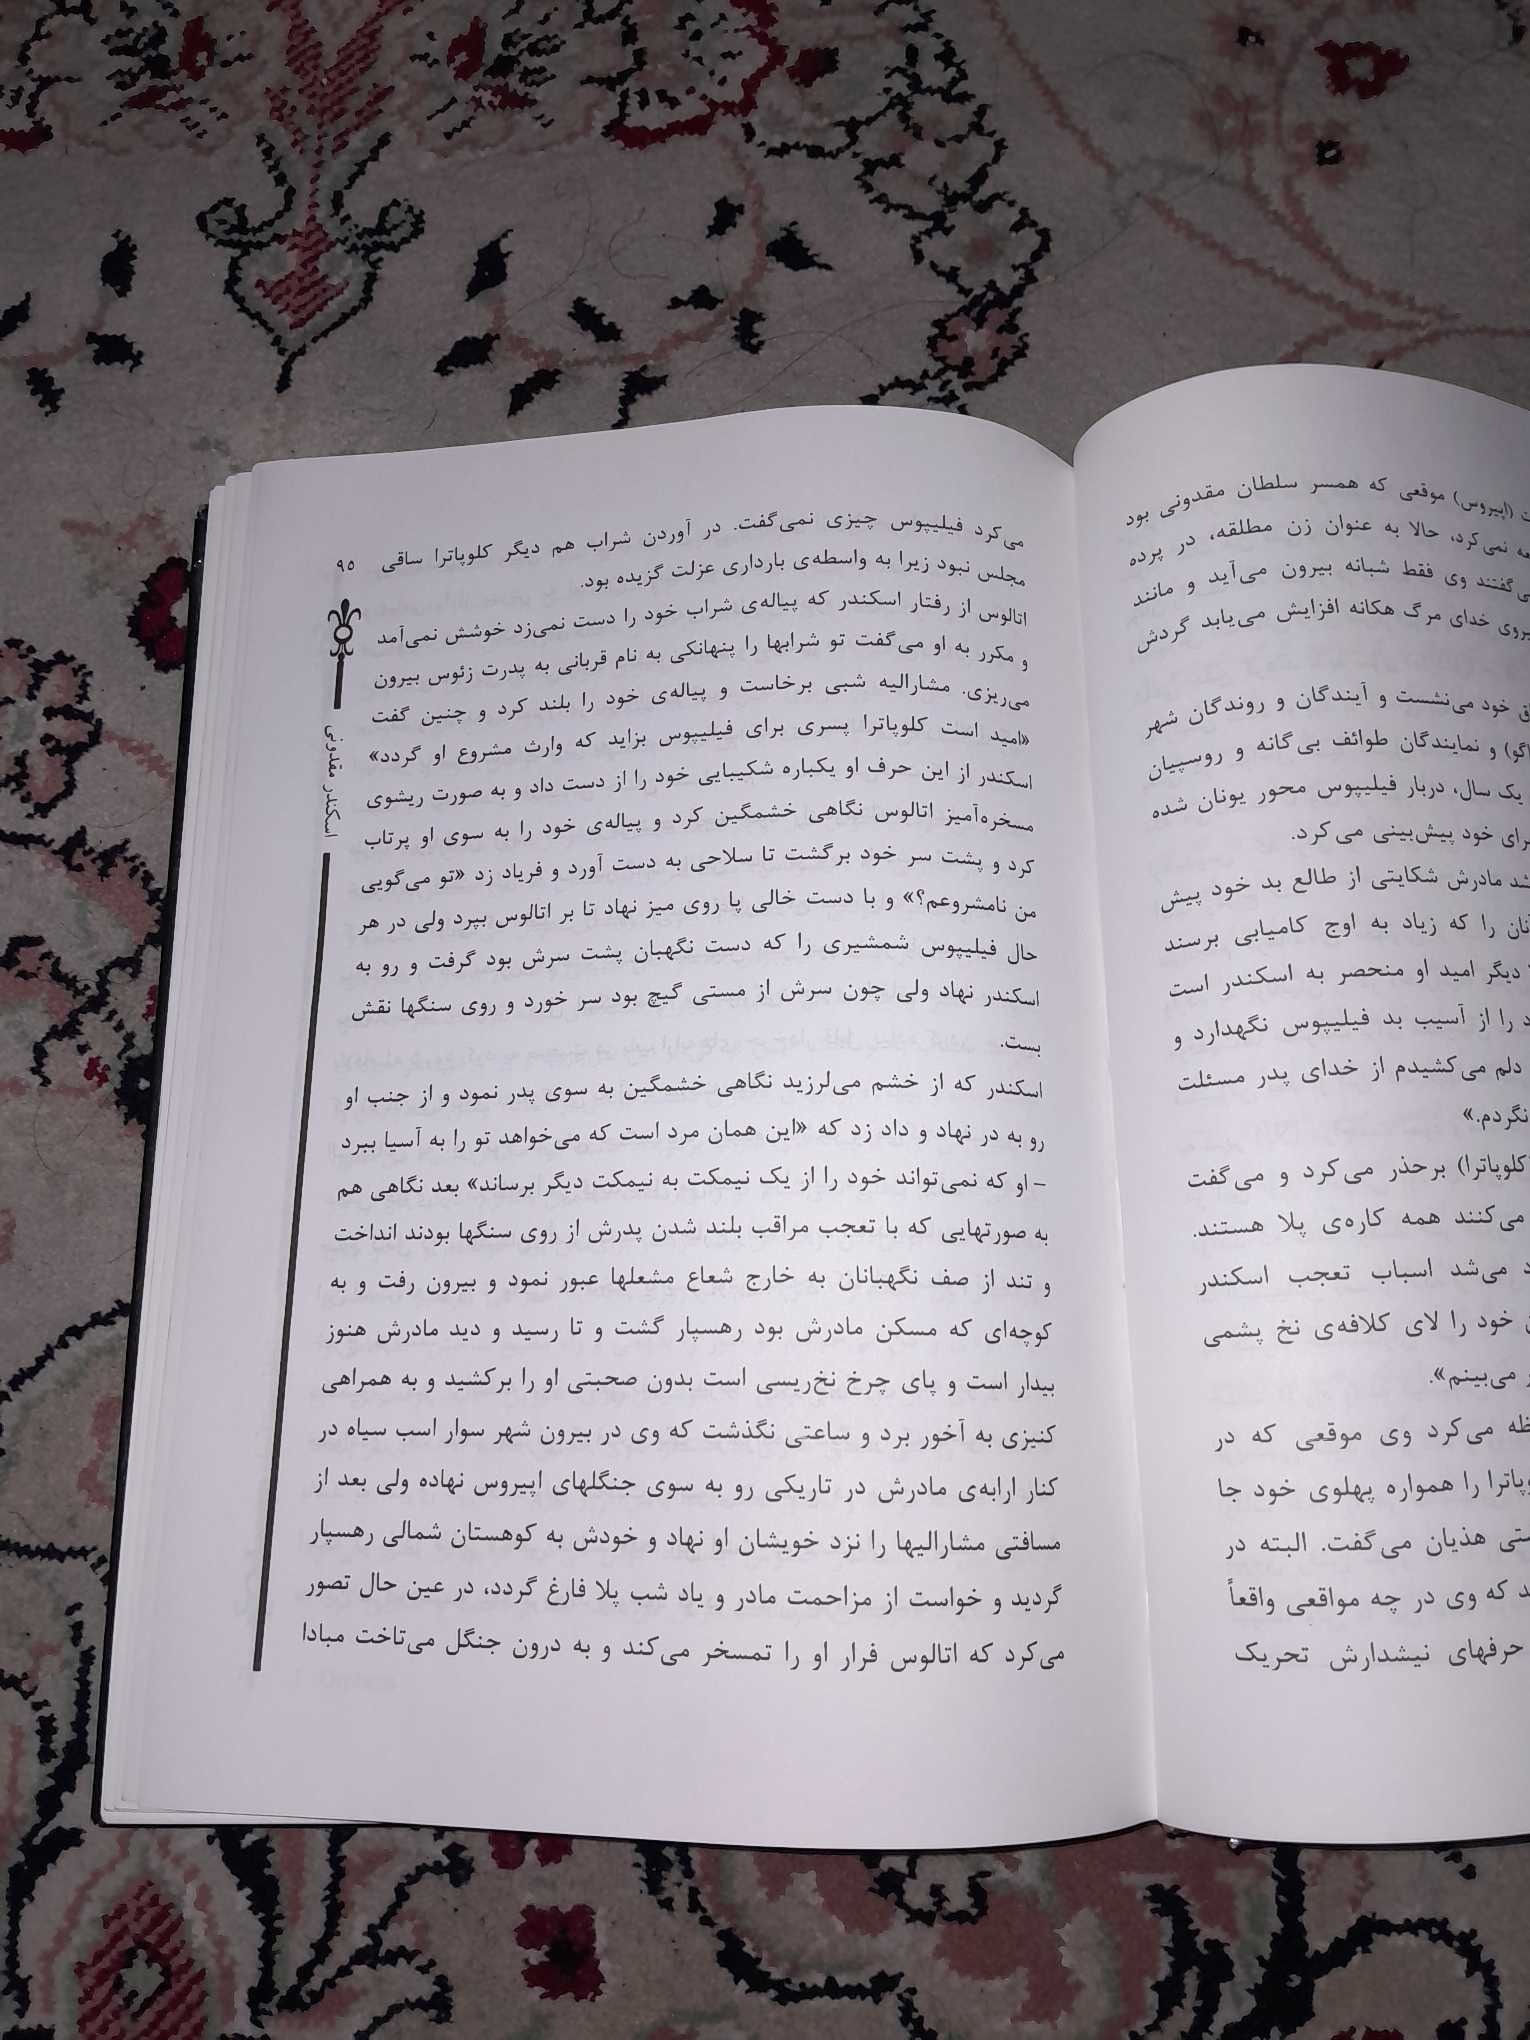 ت (اپیروس) موقعی که همسر سلطان مقدونی بود
نمی‌کرد، حالا به عنوان زن مطلقه، در پرده
گفتند وی فقط شبانه بیرون می‌آید و مانند
یروی خدای مرگ هکانه افزایش می‌یابد گردش
ق خود می‌نشست و آیندگان و روندگان شهر
اگو) و نمایندگان طوائف بی‌گانه و روسپیان
یک سال، دربار فیلیپوس محور یونان شده
رای خود پیش‌بینی می‌کرد.
شد مادرش شکایتی از طالع بد خود پیش
نان را که زیاد به اوج کامیابی برسند
دیگر امید او منحصر به اسکندر است
د را از آسیب بد فیلیپوس نگهدارد و
دلم می‌کشیدم از خدای پدر مسئلت
نگردم.»
کلوپاترا) برحذر می‌کرد و می‌گفت
می‌کنند همه کاره‌ی پلا هستند.
د می‌شد اسباب تعجب اسکندر
خود را لای کلافه‌ی نخ پشمی
می‌بینم».
ظه می‌کرد وی موقعی که در
وپاترا را همواره پهلوی خود جا
ستی هذیان می‌گفت. البته در
د که وی در چه مواقعی واقعاً
حرفهای نیشدارش تحریک
۹۵
اسکندر مقدونی
می‌کرد فیلیپوس چیزی نمی‌گفت. در آوردن شراب هم دیگر کلوپاترا ساقی
مجلس نبود زیرا به واسطه‌ی بارداری عزلت گزیده بود.
اتالوس از رفتار اسکندر که پیاله‌ی شراب خود را دست نمی‌زد خوشش نمی‌آمد
و مکرر به او می‌گفت تو شرابها را پنهانکی به نام قربانی به پدرت زئوس بیرون
می‌ریزی. مشارالیه شبی برخاست و پیاله‌ی خود را بلند کرد و چنین گفت
«امید است کلوپاترا پسری برای فیلیپوس بزاید که وارث مشروع او گردد»
اسکندر از این حرف او یکباره شکیبایی خود را از دست داد و به صورت ریشوی
مسخره‌آمیز اتالوس نگاهی خشمگین کرد و پیاله‌ی خود را به سوی او پرتاب
کرد و پشت سر خود برگشت تا سلاحی به دست آورد و فریاد زد «تو می‌گویی
من نامشروعم؟» و با دست خالی پا روی میز نهاد تا بر اتالوس بپرد ولی در هر
حال فیلیپوس شمشیری را که دست نگهبان پشت سرش بود گرفت و رو به
اسکندر نهاد ولی چون سرش از مستی گیچ بود سر خورد و روی سنگها نقش
بست.
اسکندر که از خشم می‌لرزید نگاهی خشمگین به سوی پدر نمود و از جنب او
رو به در نهاد و داد زد که «این همان مرد است که می‌خواهد تو را به آسیا ببرد
- او که نمی‌تواند خود را از یک نیمکت به نیمکت دیگر برساند» بعد نگاهی هم
به صورتهایی که با تعجب مراقب بلند شدن پدرش از روی سنگها بودند انداخت
و تند از صف نگهبانان به خارج شعاع مشعلها عبور نمود و بیرون رفت و به
کوچه‌ای که مسکن مادرش بود رهسپار گشت و تا رسید و دید مادرش هنوز
بیدار است و پای چرخ نخ‌ریسی است بدون صحبتی او را برکشید و به همراهی
کنیزی به آخور برد و ساعتی نگذشت که وی در بیرون شهر سوار اسب سیاه در
کنار ارابه‌ی مادرش در تاریکی رو به سوی جنگلهای اپیروس نهاده ولی بعد از
مسافتی مشارالیها را نزد خویشان او نهاد و خودش به کوهستان شمالی رهسپار
گردید و خواست از مزاحمت مادر و یاد شب پلا فارغ گردد، در عین حال تصور
می‌کرد که اتالوس فرار او را تمسخر می‌کند و به درون جنگل می‌تاخت مبادا